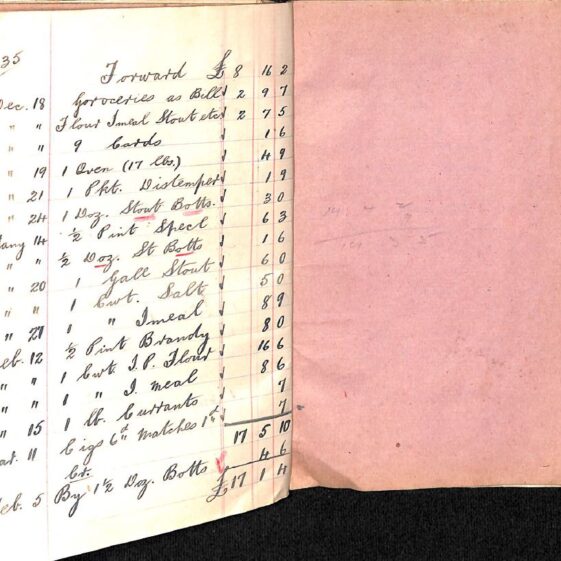 35
Forward £ 8 16 2
Dec. 18 Goroceries as Bill 2 9 7
" " Flour Imeal Stout etc 2 7 5
" " 9 Cards 1 6
" 19 1 Oven (17 lbs.) 4 9
" 21 1 Pkt. Distemper 1 9
" 24 1 Doz. Stout Botts. 3 0
Jany 14 ½ Pint Specl 6 3
" " ½ Doz. St Botts 1 6
" 20 1 Gall Stout 6 0
" " 1 Cwt. Salt 5 0
" " 1 " Imeal 8 9
" 27 ½ Pint Brandy 8 0
Feb. 12 1 Cwt I.P. Flour 16 6
" " 1 " I. meal 8 6
" " 1 lb. Currants 7
" 15 Cigs 6d Matches 1d 7
Mar. 11 17 5 10
Cr. 4 6
Feb. 5 By 1½ Doz. Botts £17 1 4